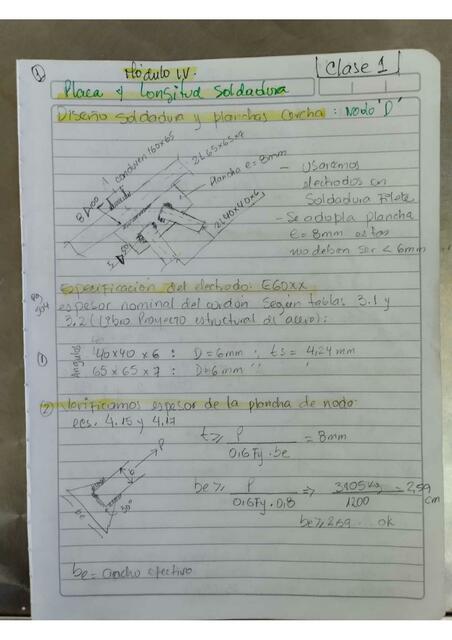 1
Módulo IV.
Clase 1
Placa y Longitud Soldadura
Diseño Soldadura y planchas concha: Nodo 'D'
2L65x65x7
Plancha e=8mm
2L40x40x6
- Usaremos
electrodos con
Soldadura Filete
- Se adopta plancha
e=8mm
no deben ser < 6mm
Especificación del electrodo: E60XX
espesor nominal del cordón Según tablas 3.1 y
3.2 (libro Proyecto estructural de acero):
1
Angulos
40x40 x 6 : D=6mm ; ts = 4.24 mm
65 x 65 x 7 : D=6mm " "
2 Verificamos espesor de la plancha de nodo:
ecs. 4.15 y 4.17
t ≥ P / 0,6 Fy . be = 8mm
P
b
be
30°
be ≥ P / 0,6 Fy . 0,8 => 3105 Kg / 1200 = 2,59 cm
be ≥ 2,59 ... ok
be = ancho efectivo